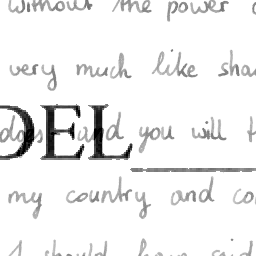 without the power
very much like
DEL
does and you will
my country and
I should have said